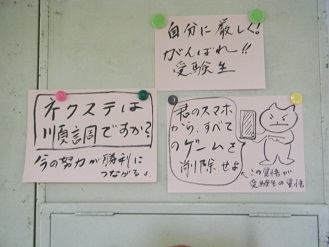 自分に厳しく!
がんばれ!!
受験生
ネクステは
順調ですか?
今の努力が勝利に
つながる。
君のスマホ
から、すべて
のゲームを
削除せよ
この覚悟が
受験生の覚悟